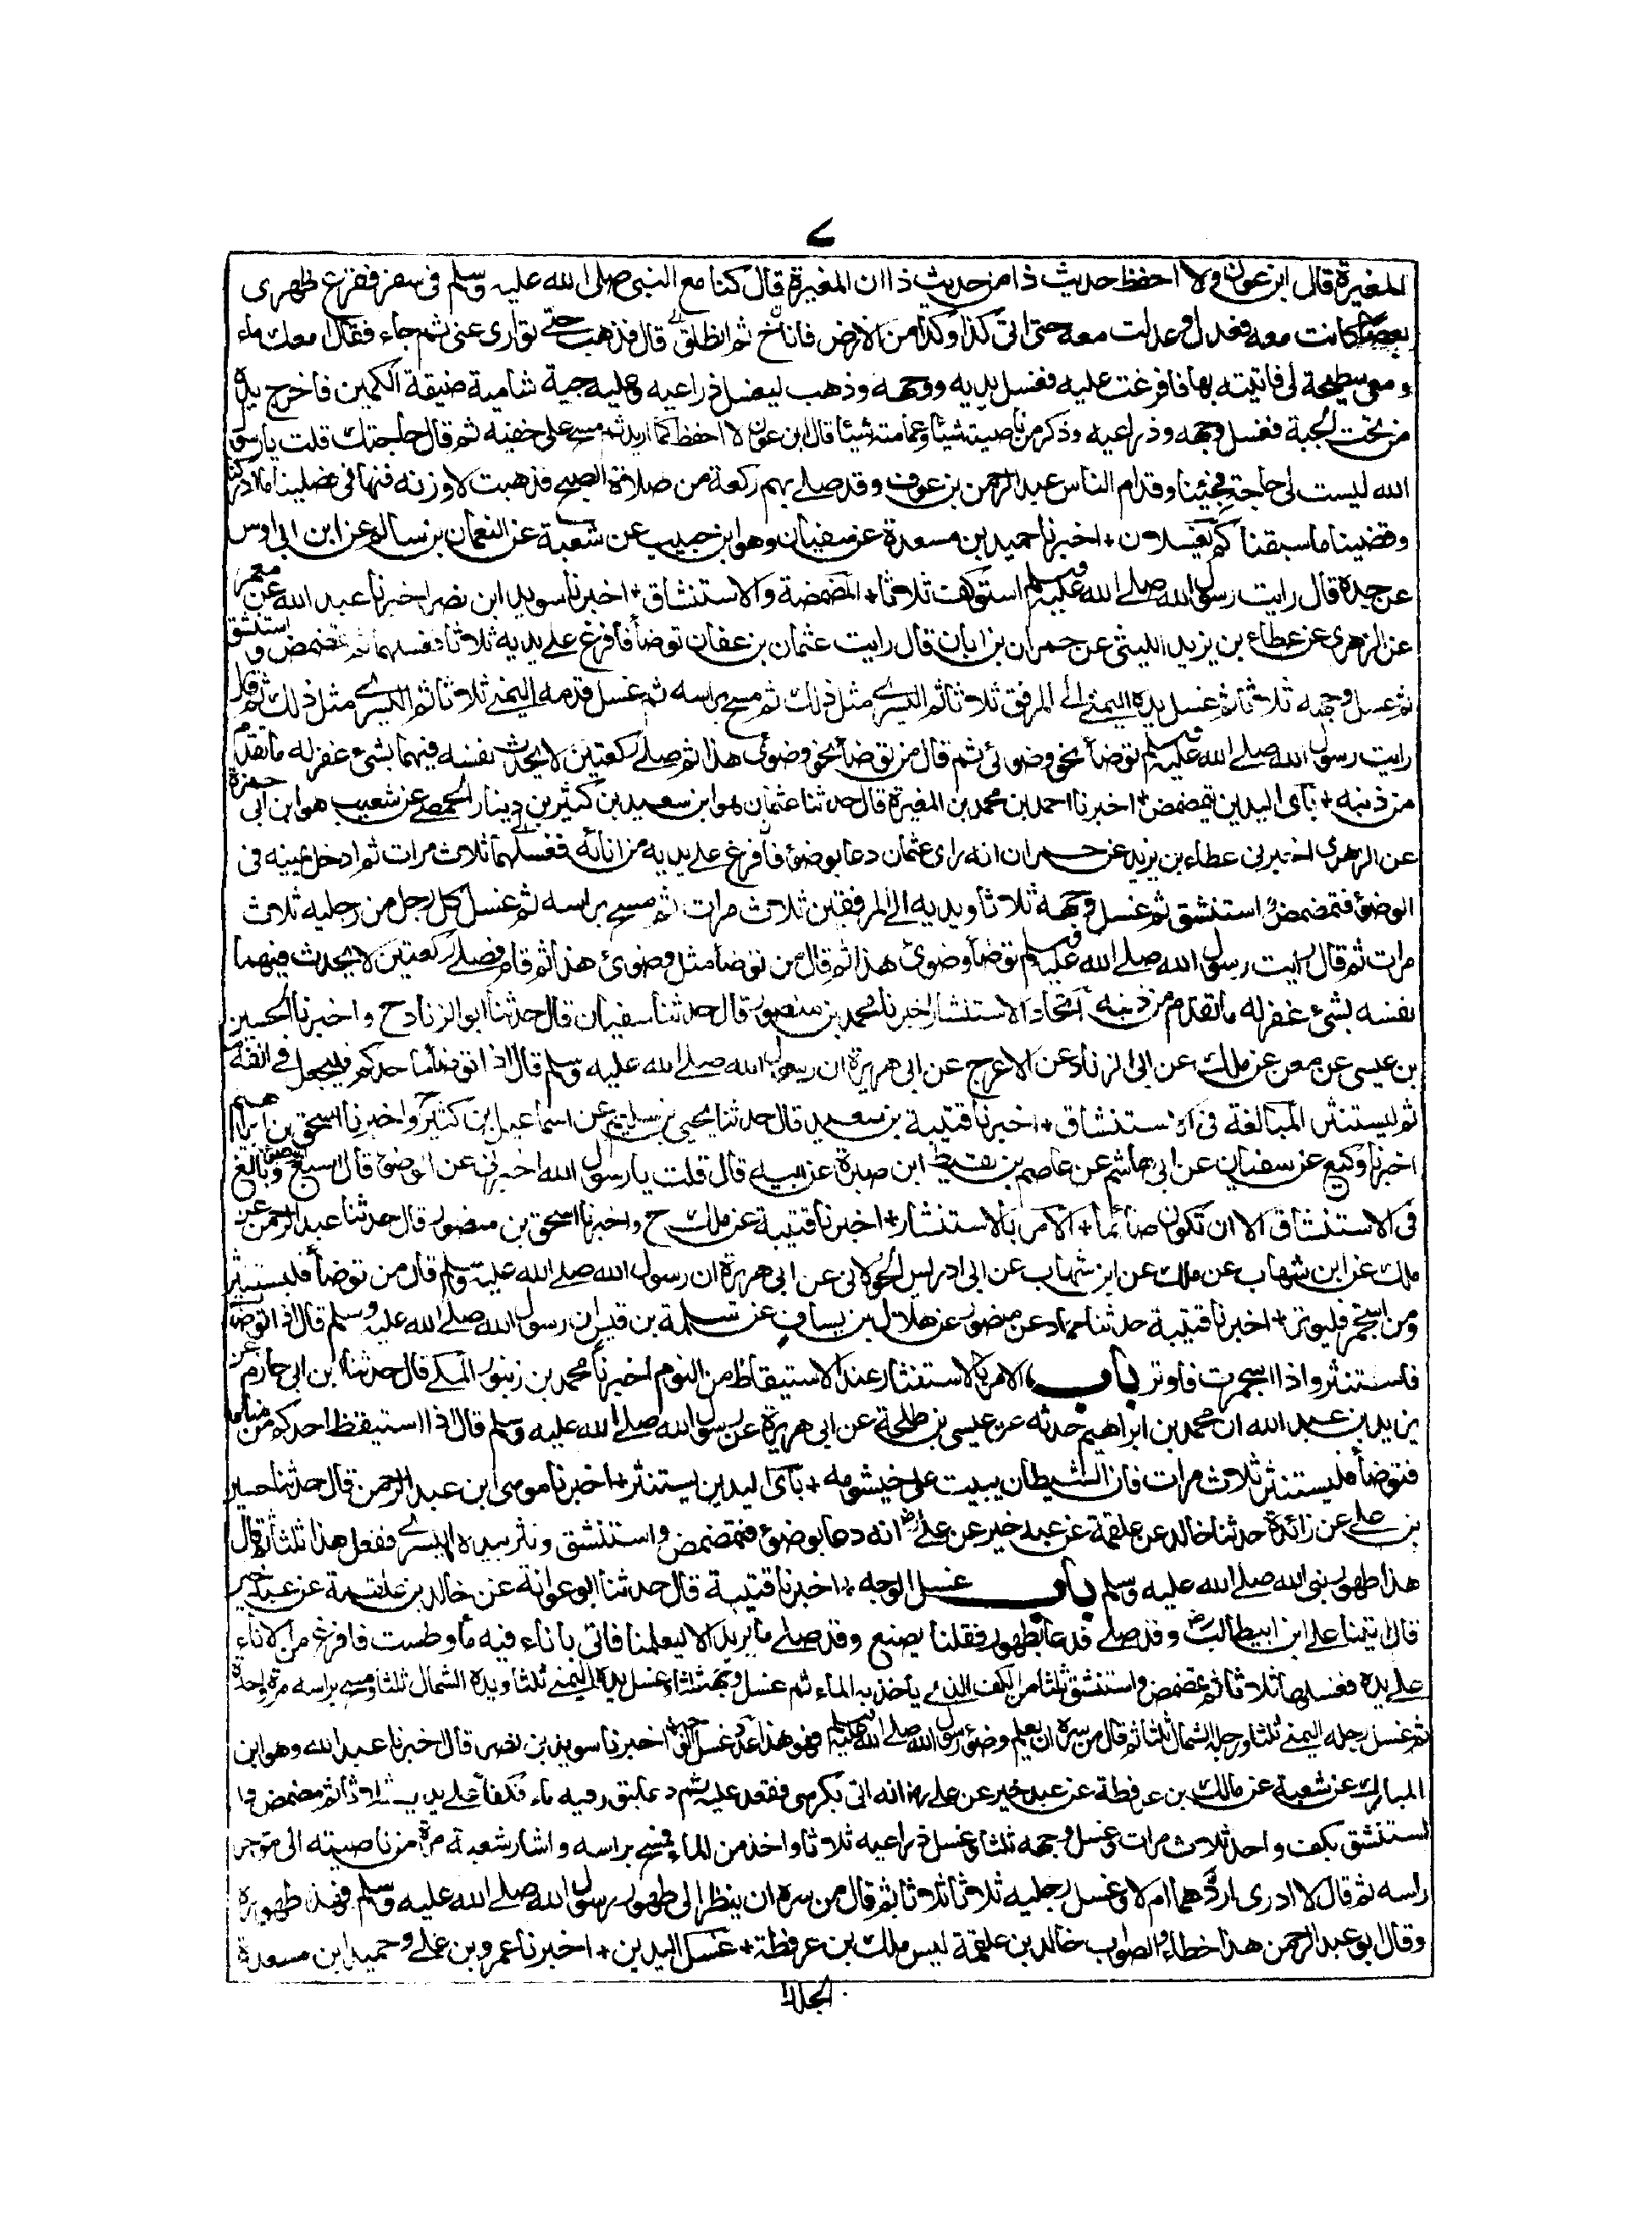 ٧
المغيرة قال ابن عون ولا احفظ حديث ذا من حديث ذا ان المغيرة قال كنا مع النبي صلى الله عليه وسلم فى سفر فقرع ظهرى
بعصا كانت معه فعدل وعدلت معه حتى اتى كذا وكذا من الارض فاناخ ثم انطلق قال فذهب حتے توارى عنى ثم جاء فقال امعك ماء
ومعى سطيحة لى فاتيته بها فافرغت عليه فغسل يديه ووجهه وذهب ليغسل ذراعيه وعليه جبة شامية ضيقة الكمين فاخرج يده
من تحت الجبة فغسل وجهه وذراعيه وذكر من ناصيته شيئا وعمامته شيئا قال ابن عون لا احفظ كما اريد ثم مسح على خفيه ثم قال حاجتك قلت يا رسول
الله ليست لى حاجة فجئنا وقد ام الناس عبد الرحمن بن عوف وقد صلے بهم ركعة من صلاة الصبح فذهبت لاوذنه فنهانى فصلينا ما ادركنا
وقضينا ما سبقنا كم تغسلان + اخبرنا حميد بن مسعدة عن سفيان وهو ابن حبيب عن شعبة عن النعمان بن سالم عن ابن ابى اوس
عن جده قال رايت رسول الله صلے الله عليه وسلم استوكف ثلاثا + المضمضة والاستنشاق + اخبرنا سويد ابن نصر اخبرنا عبد الله عن معمر
عن الزهرى عن عطاء بن يزيد الليثى عن حمران بن ابان قال رايت عثمان بن عفان توضأ فافرغ علے يديه ثلاثا فغسلهما ثم تمضمض واستنشق
ثم غسل وجهه ثلاثا ثم غسل يده اليمنے الے المرفق ثلاثا ثم اليسرے مثل ذلك ثم مسح براسه ثم غسل قدمه اليمنے ثلاثا ثم اليسرے مثل ذلك ثم قال
رايت رسول الله صلے الله عليه وسلم توضأ نحو وضوئى ثم قال من توضأ نحو وضوئى هذا ثم صلے ركعتين لا يحدث نفسه فيهما بشئ غفر له ما تقدم
من ذنبه + باى اليدين يتمضمض + اخبرنا احمد بن محمد بن المغيرة قال حدثنا عثمان هو ابن سعيد بن كثير بن دينار الحمصے عن شعيب هو ابن ابى حمزة
عن الزهرى اخبرنى عطاء بن يزيد عن حمران انه راى عثمان دعا بوضوء فافرغ علے يديه من انائه فغسلهما ثلاث مرات ثم ادخل يمينه فى
الوضوء فتمضمض واستنشق ثم غسل وجهه ثلاثا ويديه الے المرفقين ثلاث مرات ثم مسح براسه ثم غسل كل رجل من رجليه ثلاث
مرات ثم قال رايت رسول الله صلے الله عليه وسلم توضأ وضوئ هذا ثم قال من توضأ مثل وضوئ هذا ثم قام فصلے ركعتين لا يحدث فيهما
نفسه بشئ غفر له ما تقدم من ذنبه اتخاذ الاستنشار اخبرنا محمد بن منصور قال حدثنا سفيان قال حدثنا ابو الزناد ح واخبرنا الحسين
بن عيسى عن معن عن ملك عن ابى الزناد عن الاعرج عن ابى هريرة ان رسول الله صلے الله عليه وسلم قال اذا توضأ احدكم فليجعل فے انفه
ثم ليستنثر المبالغة فى الاستنشاق + اخبرنا قتيبة بن سعيد قال حدثنا يحيى بن سليم عن اسماعيل ابن كثير ح واخبرنا اسحق بن ابراهيم
اخبرنا وكيع عن سفيان عن ابى هاشم عن عاصم بن لقيط ابن صبرة عن ابيه قال قلت يا رسول الله اخبرنى عن الوضوء قال اسبغ الوضوء وبالغ
فى الاستنشاق الا ان تكون صائما + الامر بالاستنشار + اخبرنا قتيبة عن ملك ح واخبرنا اسحق بن منصور قال حدثنا عبد الرحمن عن
ملك عن ابن شهاب عن ملك عن ابن شهاب عن ابى ادريس الخولانى عن ابى هريرة ان رسول الله صلے الله عليه وسلم قال من توضأ فليستنثر
ومن استجمر فليوتر + اخبرنا قتيبة حدثنا حماد عن منصور عن هلال بن يساف عن سلمة بن قيس ان رسول الله صلے الله عليه وسلم قال اذا توضأت
فاستنثر واذا استجمرت فاوتر باب الامر بالاستنثار عند الاستيقاظ من النوم اخبرنا محمد بن زنبور المكے قال حدثنا ابن ابى حازم عن
يزيد بن عبد الله ان محمد بن ابراهيم حدثه عن عيسى بن طلحة عن ابى هريرة عن رسول الله صلے الله عليه وسلم قال اذا استيقظ احدكم من منامه
فتوضأ فليستنثر ثلاث مرات فان الشيطان يبيت على خيشومه + باى اليدين يستنثر + اخبرنا موسى ابن عبد الرحمن قال حدثنا حسين
بن علے عن زائدة حدثنا خالد عن علقمة عن عبد خير عن علے رض انه دعا بوضوء فتمضمض واستنشق ونثر بيده اليسرے ففعل هذا ثلثا ثم قال
هذا طهور نبى الله صلے الله عليه وسلم باب غسل الوجه اخبرنا قتيبة قال حدثنا ابو عوانة عن خالد بن علقمة عن عبد خير
قال اتينا علے ابن ابيطالب رض وقد صلے فدعا بطهور فقلنا يصنع وقد صلے ما يريد الا ليعلمنا فاتى باناء فيه ماء وطست فافرغ من الاناء
علے يده فغسلها ثلاثا ثم تمضمض واستنشق ثلثا من الكف الذى ياخذ به الماء ثم غسل وجهه ثلثا وغسل يده اليمنے ثلثا ويده الشمال ثلثا ومسح براسه مرة واحدة
ثم غسل رجله اليمنے ثلثا ورجله الشمال ثلثا ثم قال من سره ان يعلم وضوء رسول الله صلے الله عليه وسلم فهو هذا عدد غسل الوجه اخبرنا سويد بن نصر قال اخبرنا عبد الله وهو ابن
المبارك عن شعبة عن مالك بن عرفطة عن عبد خير عن علے رض انه اتى بكرسى فقعد عليه ثم دعا بتور فيه ماء فكفأ علے يديه ثلاثا ثم مضمض وا
ستنشق بكف واحد ثلاث مرات وغسل وجهه ثلثا وغسل ذراعيه ثلاثا واخذ من الماء فمسح براسه واشار شعبة مرة من ناصيته الى موخر
راسه ثم قال لا ادرى اردهما ام لا وغسل رجليه ثلاثا ثلاثا ثم قال من سره ان ينظر الى طهور رسول الله صلے الله عليه وسلم فهذا طهوره
وقال ابو عبد الرحمن هذا خطاء والصواب خالد بن علقمة ليس ملك بن عرفطة + غسل اليدين + اخبرنا عمرو بن علے وحميد ابن مسعدة